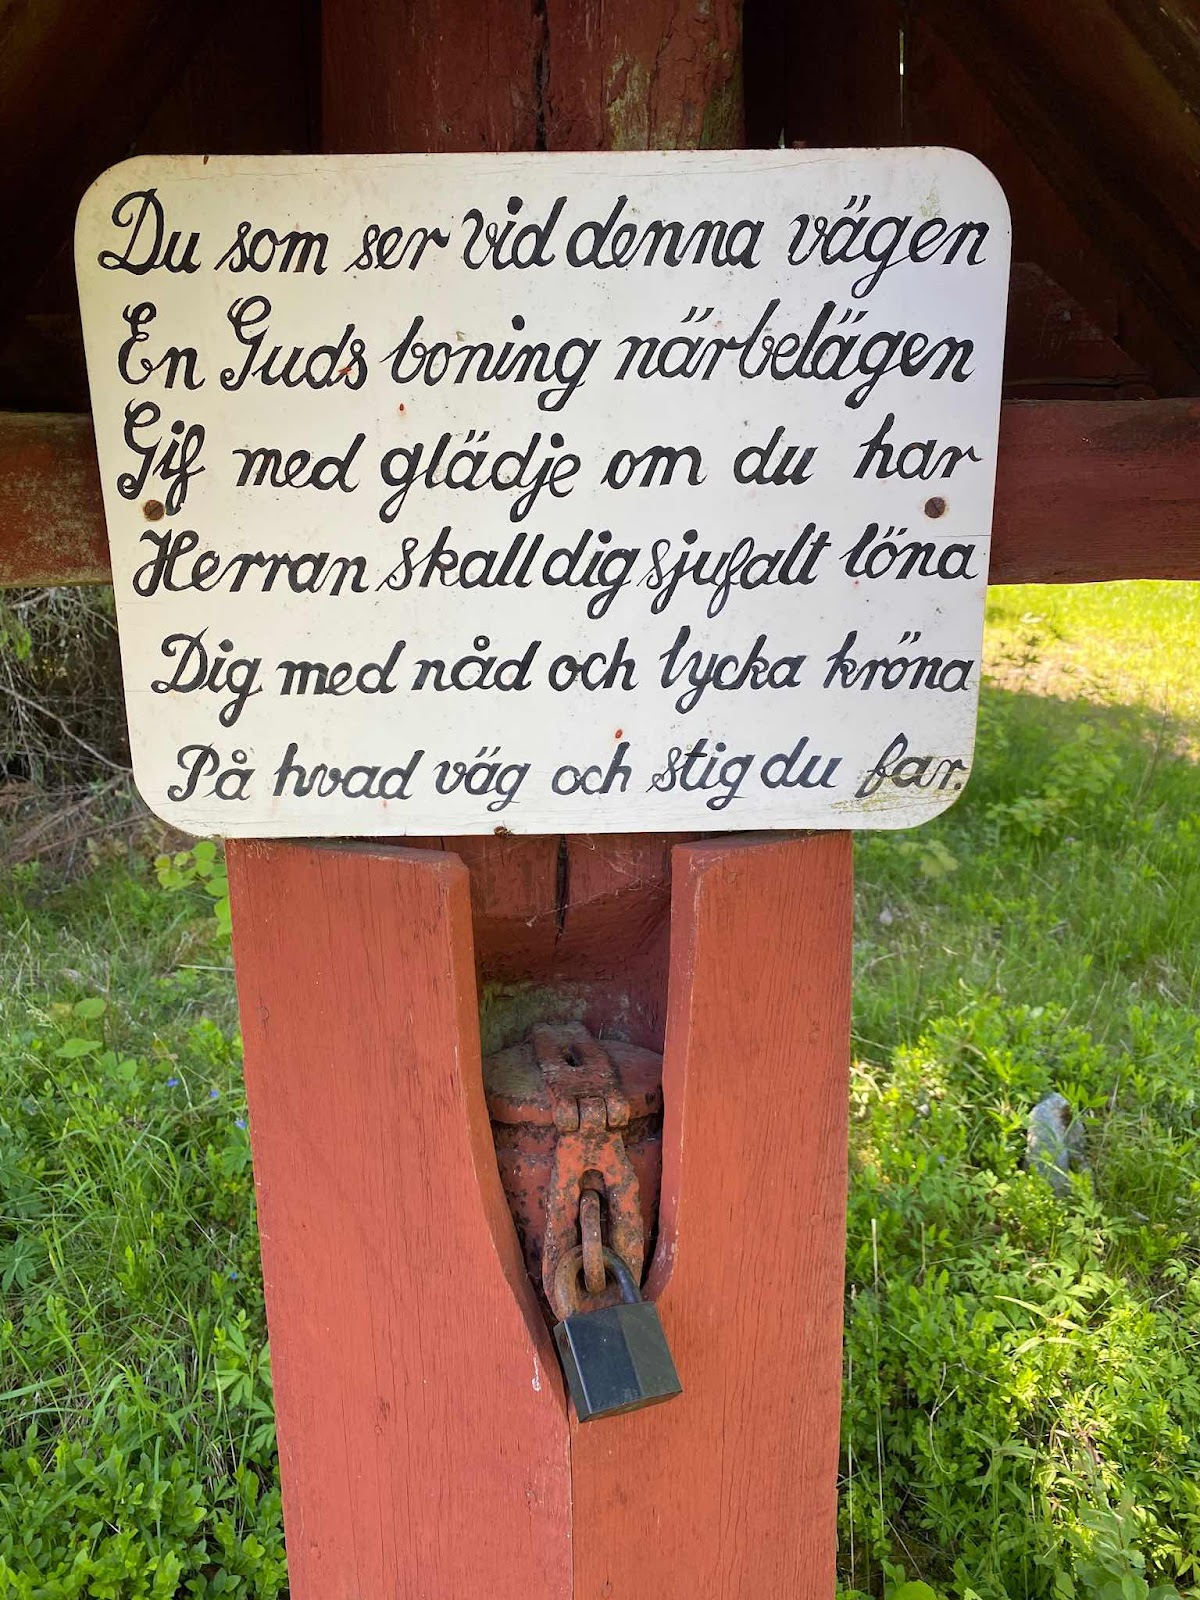 Du som ser vid denna vägen
En Guds boning närbelägen
Gif med glädje om du har
Herran skall dig sjufalt löna
Dig med nåd och lycka kröna
På hvad väg och stig du far.